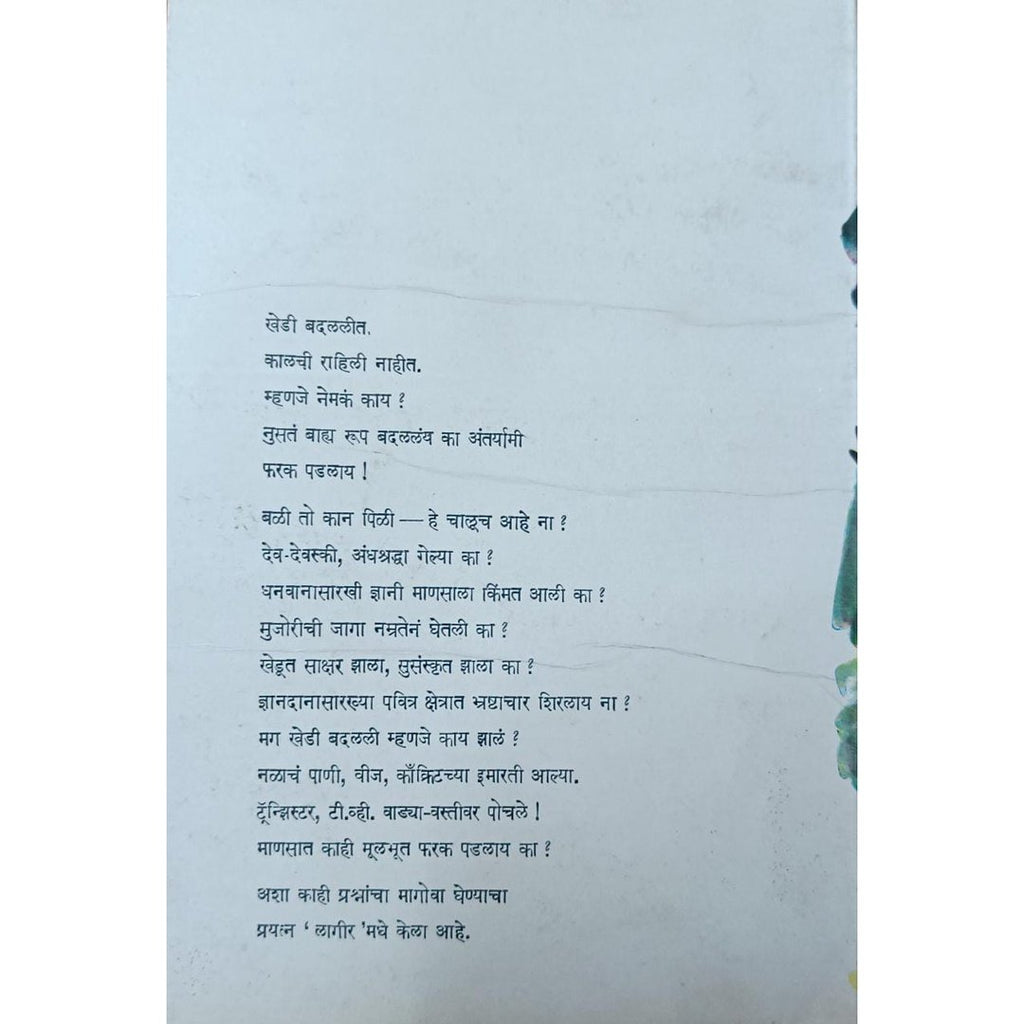 खेडी बदललीत.
कालची राहिली नाहीत.
म्हणजे नेमकं काय ?
नुसतं बाह्य रूप बदललंय का अंतर्यामी
फरक पडलाय !
बळी तो कान पिळी — हे चालूच आहे ना ?
देव-देवस्की, अंधश्रद्धा गेल्या का ?
धनवानासारखी ज्ञानी माणसाला किंमत आली का ?
मुजोरीची जागा नम्रतेनं घेतली का ?
खेडूत साक्षर झाला, सुसंस्कृत झाला का ?
ज्ञानदानासारख्या पवित्र क्षेत्रात भ्रष्टाचार शिरलाय ना ?
मग खेडी बदलली म्हणजे काय झालं ?
नळाचं पाणी, वीज, काँक्रिटच्या इमारती आल्या.
ट्रॅन्झिस्टर, टी.व्ही. वाड्या-वस्तीवर पोचले !
माणसात काही मूलभूत फरक पडलाय का ?
अशा काही प्रश्नांचा मागोवा घेण्याचा
प्रयत्न ' लागीर 'मधे केला आहे.